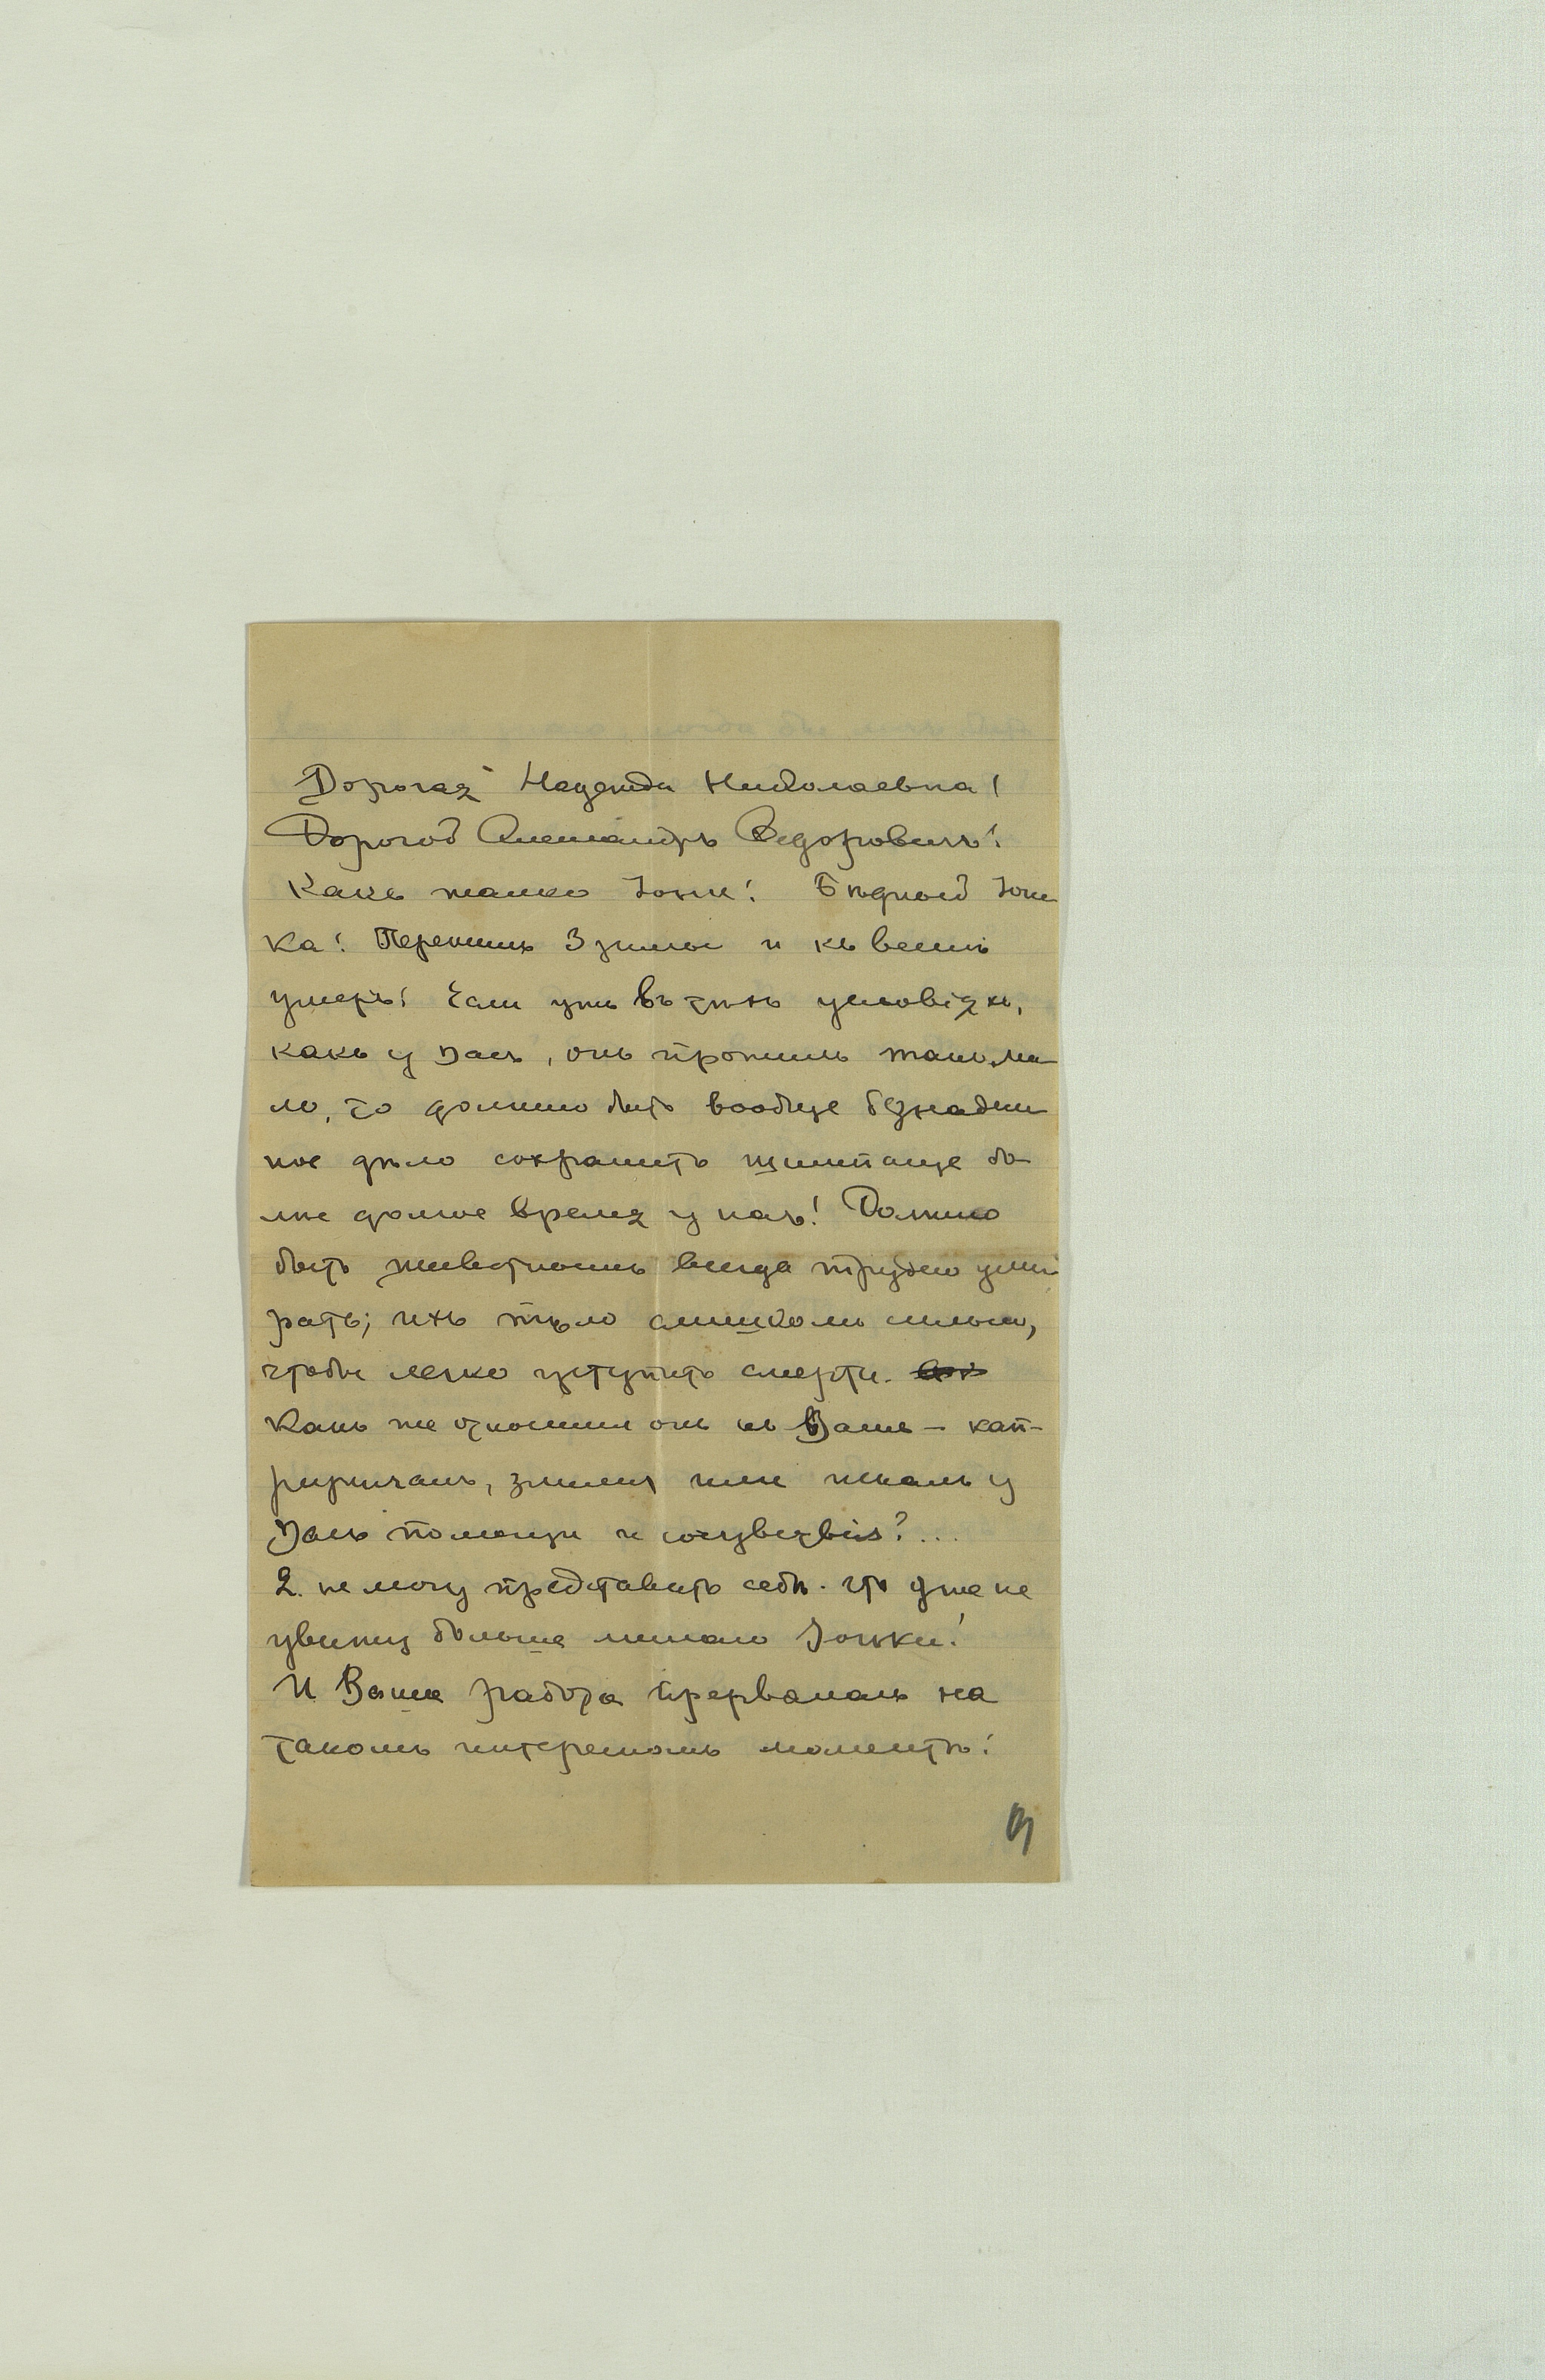 Дорогая Надежда Николаевна!
Дорогой Александръ Федоровичъ!
Какъ жалко Іони! Бѣдный Іони
ка! Пережилъ 3 зимы и къ веснѣ
умеръ! Если ужъ въ такихъ условіяхъ,
какъ у Васъ, онъ прожилъ такъ ма
ло, то должно быть вообще безнадеж
ное дѣло сохранить шимпанзе бо
лѣе долгое время у насъ! Должно
быть животнымъ всегда трудно уми
рать; ихъ тѣло слишкомъ сильно,
чтобы легко уступить смерти.
Какъ же относился онъ къ Вамъ — кап-
ризничалъ, злился или искалъ у
Васъ помощи и сочувствія?...
Я не могу представить себѣ, что уже не
увижу больше милаго Іоньки!
И Ваша работа прервалась на
такомъ интересномъ моментѣ!